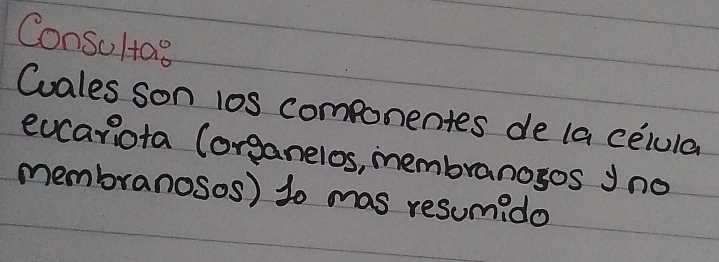 Consulta:
Cuales son los componentes de la célula
eucariota (organelos, membranosos y no
membranosos) lo mas resumido